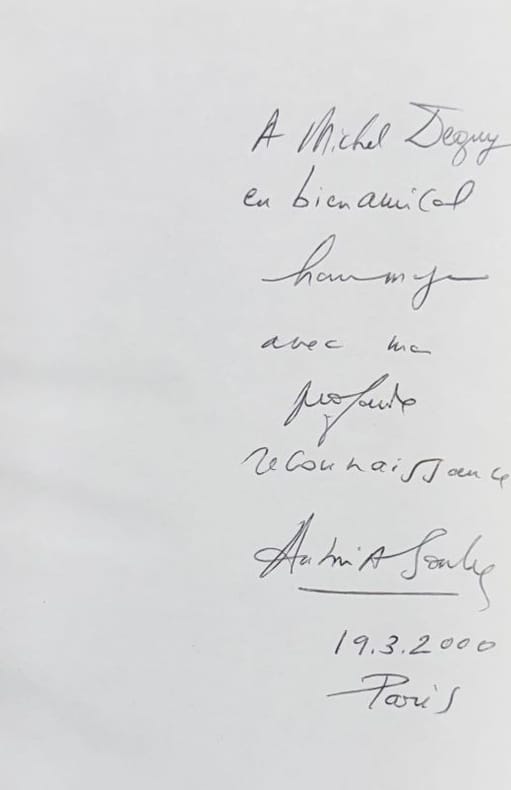 A Michel Deguy
en bien amical
hommage
avec ma
profonde
reconnaissance
19.3.2000
Paris